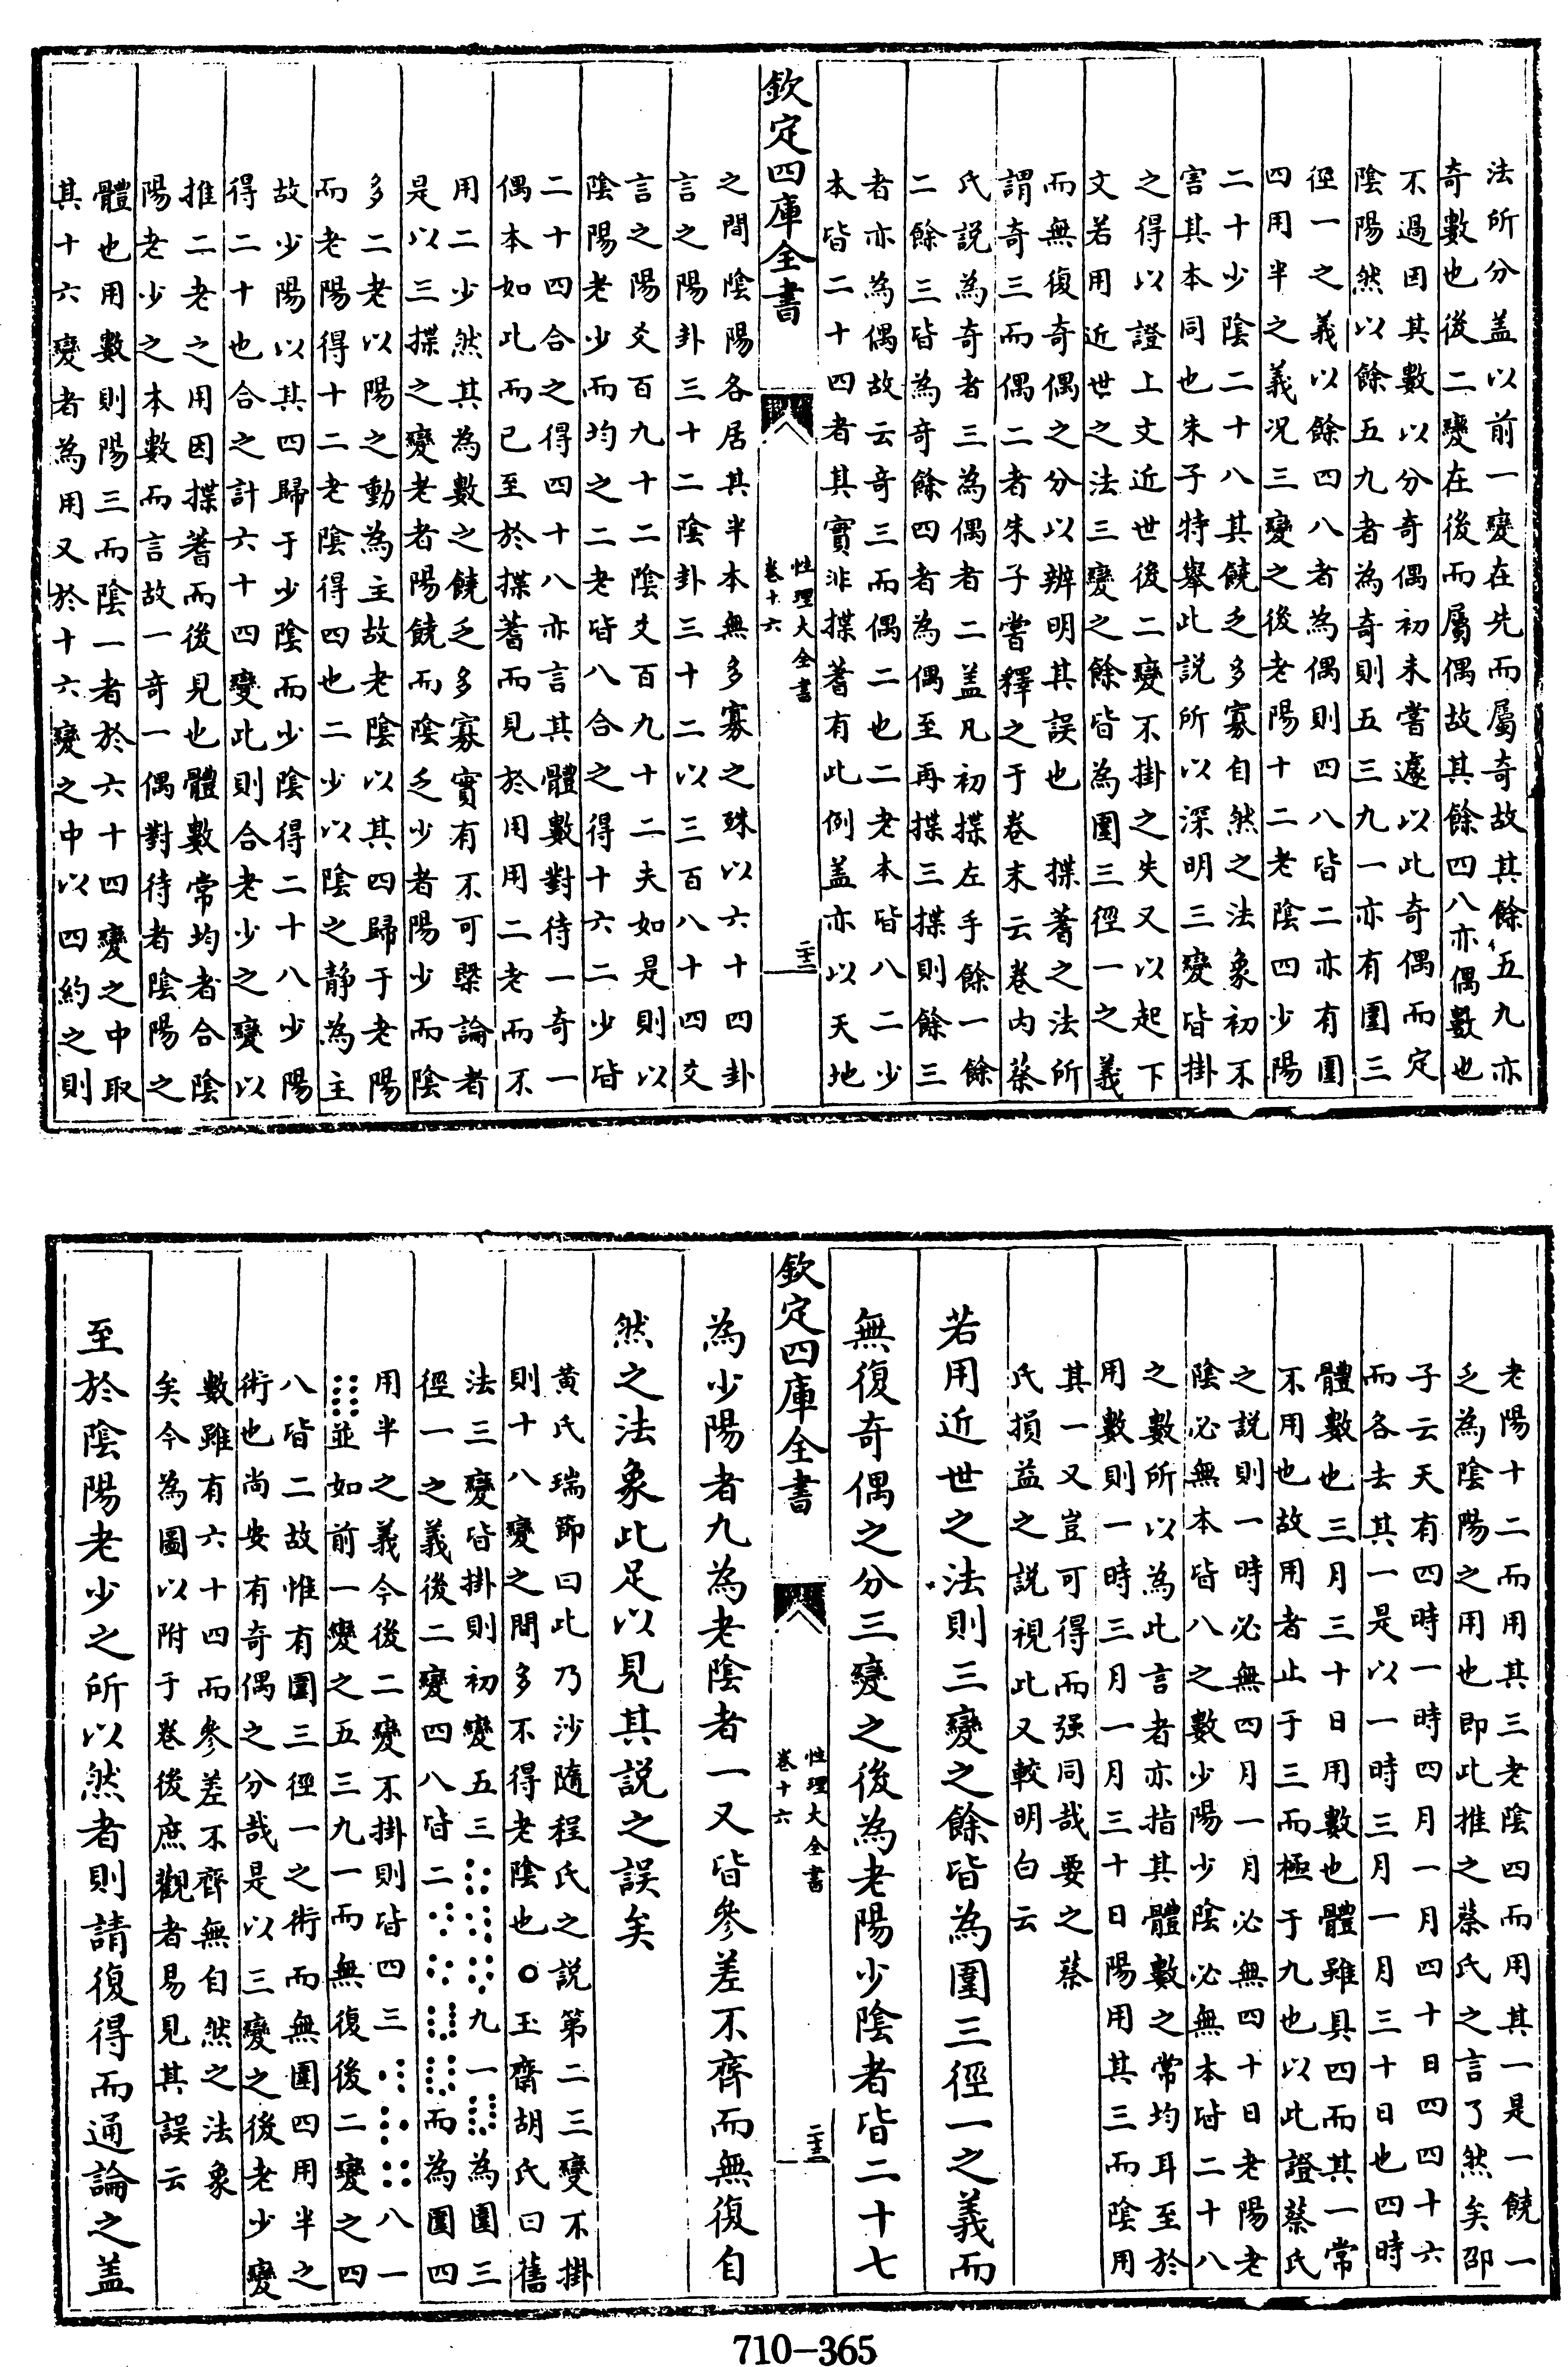 法所分盖以前一變在先而屬奇故其餘五九亦
奇數也後二變在後而屬偶故其餘四八亦偶數也
不過因其數以分奇偶初未嘗遽以此奇偶而定
陰陽然以餘五九者為奇則五三九一亦有圍三
徑一之義以餘四八者為偶則四八皆二亦有圍
四用半之義况三變之後老陽十二老陰四少陽
二十少陰二十八其饒乏多寡自然之法象初不
害其本同也朱子特舉此説所以深明三變皆掛
之得以證上文近世後二變不掛之失又以起下
文若用近世之法三變之餘皆為圍三徑一之義
而無復奇偶之分以辨明其誤也　揲蓍之法所
謂奇三而偶二者朱子嘗釋之于卷末云卷内蔡
氏説為奇者三為偶者二盖凡初揲左手餘一餘
二餘三皆為奇餘四者為偶至再揲三揲則餘三
者亦為偶故云奇三而偶二也二老本皆八二少
本皆二十四者其實非揲蓍有此例盖亦以天地
欽定四庫全書
性理大全書
卷十六
二十三
之間陰陽各居其半本無多寡之殊以六十四卦
言之陽卦三十二陰卦三十二以三百八十四爻
言之陽爻百九十二陰爻百九十二夫如是則以
陰陽老少而均之二老皆八合之得十六二少皆
二十四合之得四十八亦言其體數對待一奇一
偶本如此而已至於揲蓍而見於用用二老而不
用二少然其為數之饒乏多寡實有不可槩論者
是以三揲之變老者陽饒而陰乏少者陽少而陰
多二老以陽之動為主故老陰以其四歸于老陽
而老陽得十二老陰得四也二少以陰之静為主
故少陽以其四歸于少陰而少陰得二十八少陽
得二十也合之計六十四變此則合老少之變以
推二老之用因揲蓍而後見也體數常均者合陰
陽老少之本數而言故一奇一偶對待者陰陽之
體也用數則陽三而陰一者於六十四變之中取
其十六變者為用又於十六變之中以四約之則
老陽十二而用其三老陰四而用其一是一饒一
乏為陰陽之用也即此推之蔡氏之言了然矣邵
子云天有四時一時四月一月四十日四四十六
而各去其一是以一時三月一月三十日也四時
體數也三月三十日用數也體雖具四而其一常
不用也故用者止于三而極于九也以此證蔡氏
之説則一時必無四月一月必無四十日老陽老
陰必無本皆八之數少陽少陰必無本皆二十八
之數所以為此言者亦指其體數之常均耳至於
用數則一時三月一月三十日陽用其三而陰用
其一又豈可得而强同哉要之蔡
氏損益之説視此又較明白云
若用近世之法則三變之餘皆為圍三徑一之義而
無復奇偶之分三變之後為老陽少陰者皆二十七
欽定四庫全書
性理大全書
卷十六
二十三
為少陽者九為老陰者一又皆參差不齊而無復自
然之法象此足以見其説之誤矣
黄氏瑞節曰此乃沙隨程氏之説第二三變不掛
則十八變之間多不得老陰也○玉齋胡氏曰舊
法三變皆掛則初變五三九一為圍三
徑一之義後二變四八皆二而為圍四
用半之義今後二變不掛則皆四三八一
並如前一變之五三九一而無復後二變之四
八皆二故惟有圍三徑一之術而無圍四用半之
術也尚安有奇偶之分哉是以三變之後老少變
數雖有六十四而參差不齊無自然之法象
矣今為圖以附于卷後庶觀者易見其誤云
至於陰陽老少之所以然者則請復得而通論之盖
710-365